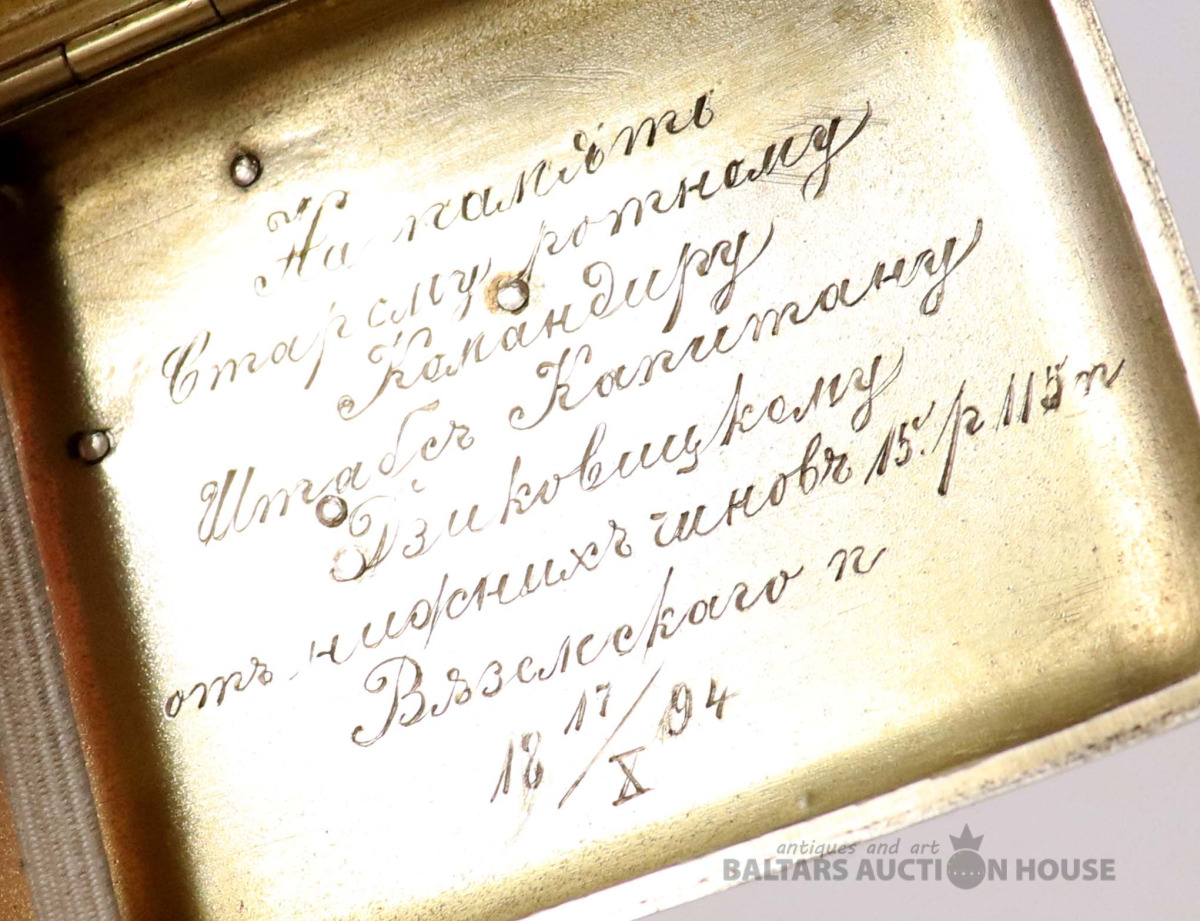 На памѣть
Старому ротному
Командиру
Штабсъ Капитану
Гзиковицкому
отъ нижнихъ чиновъ 15. р 115 п
Вяземскаго п
18 17/X 94
antiques and art
BALTARS AUCTION HOUSE